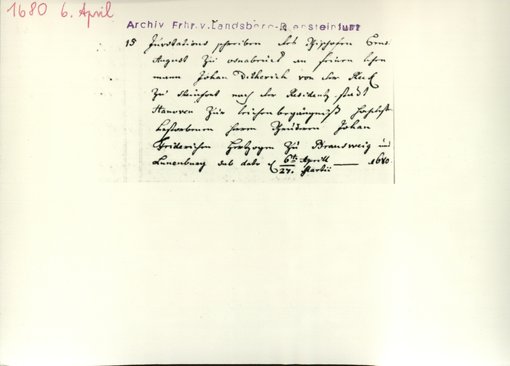 1680 6. April
Archiv Frhr. v. Landsberg-Velen, Steinfurt
13 Invitations schreiben des Bischofen Ernst
August zu osnabrück an seinen lehen
mann Johan Ditherich von der Reck
zu Steinfort nach der Residentz stadt
Hanover zur leichenbegängniß höchst
bestorbenen herrn Bruderen Johan
Friderichen hertzogen zu Braunsweig und
Lunenburg sub dato 6th Aprill 1680
27. Martii